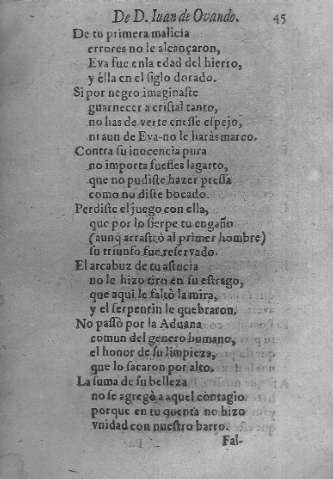 De D. Iuan de Ovando. 45
De tu primera malicia
errores no le alcançaron,
Eva fue enla edad del hierro,
y èlla en el siglo dorado.
Si por negro imaginaste
guarnecer a cristal tanto,
no has de verte en esse espejo,
ni aun de Eva-no le haràs marco.
Contra su inocencia pura
no importa fuesses lagarto,
que no pudiste hazer pressa
como no diste bocado.
Perdiste el juego con ella,
que por lo sierpe tu engaño
(aunq̃ arrastrò al primer hombre)
su triunfo fue reservado.
El arcabuz de tu astucia
no le hizo tiro en su estrago,
que aqui le faltò la mira,
y el serpentin le quebraron.
No passò por la Aduana
comun del genero humano,
el honor de su limpieza,
que lo sacaron por alto.
La suma de su belleza
no se agregò a aquel contagio
porque en tu quenta no hizo
vnidad con nuestro barro.
Fal-